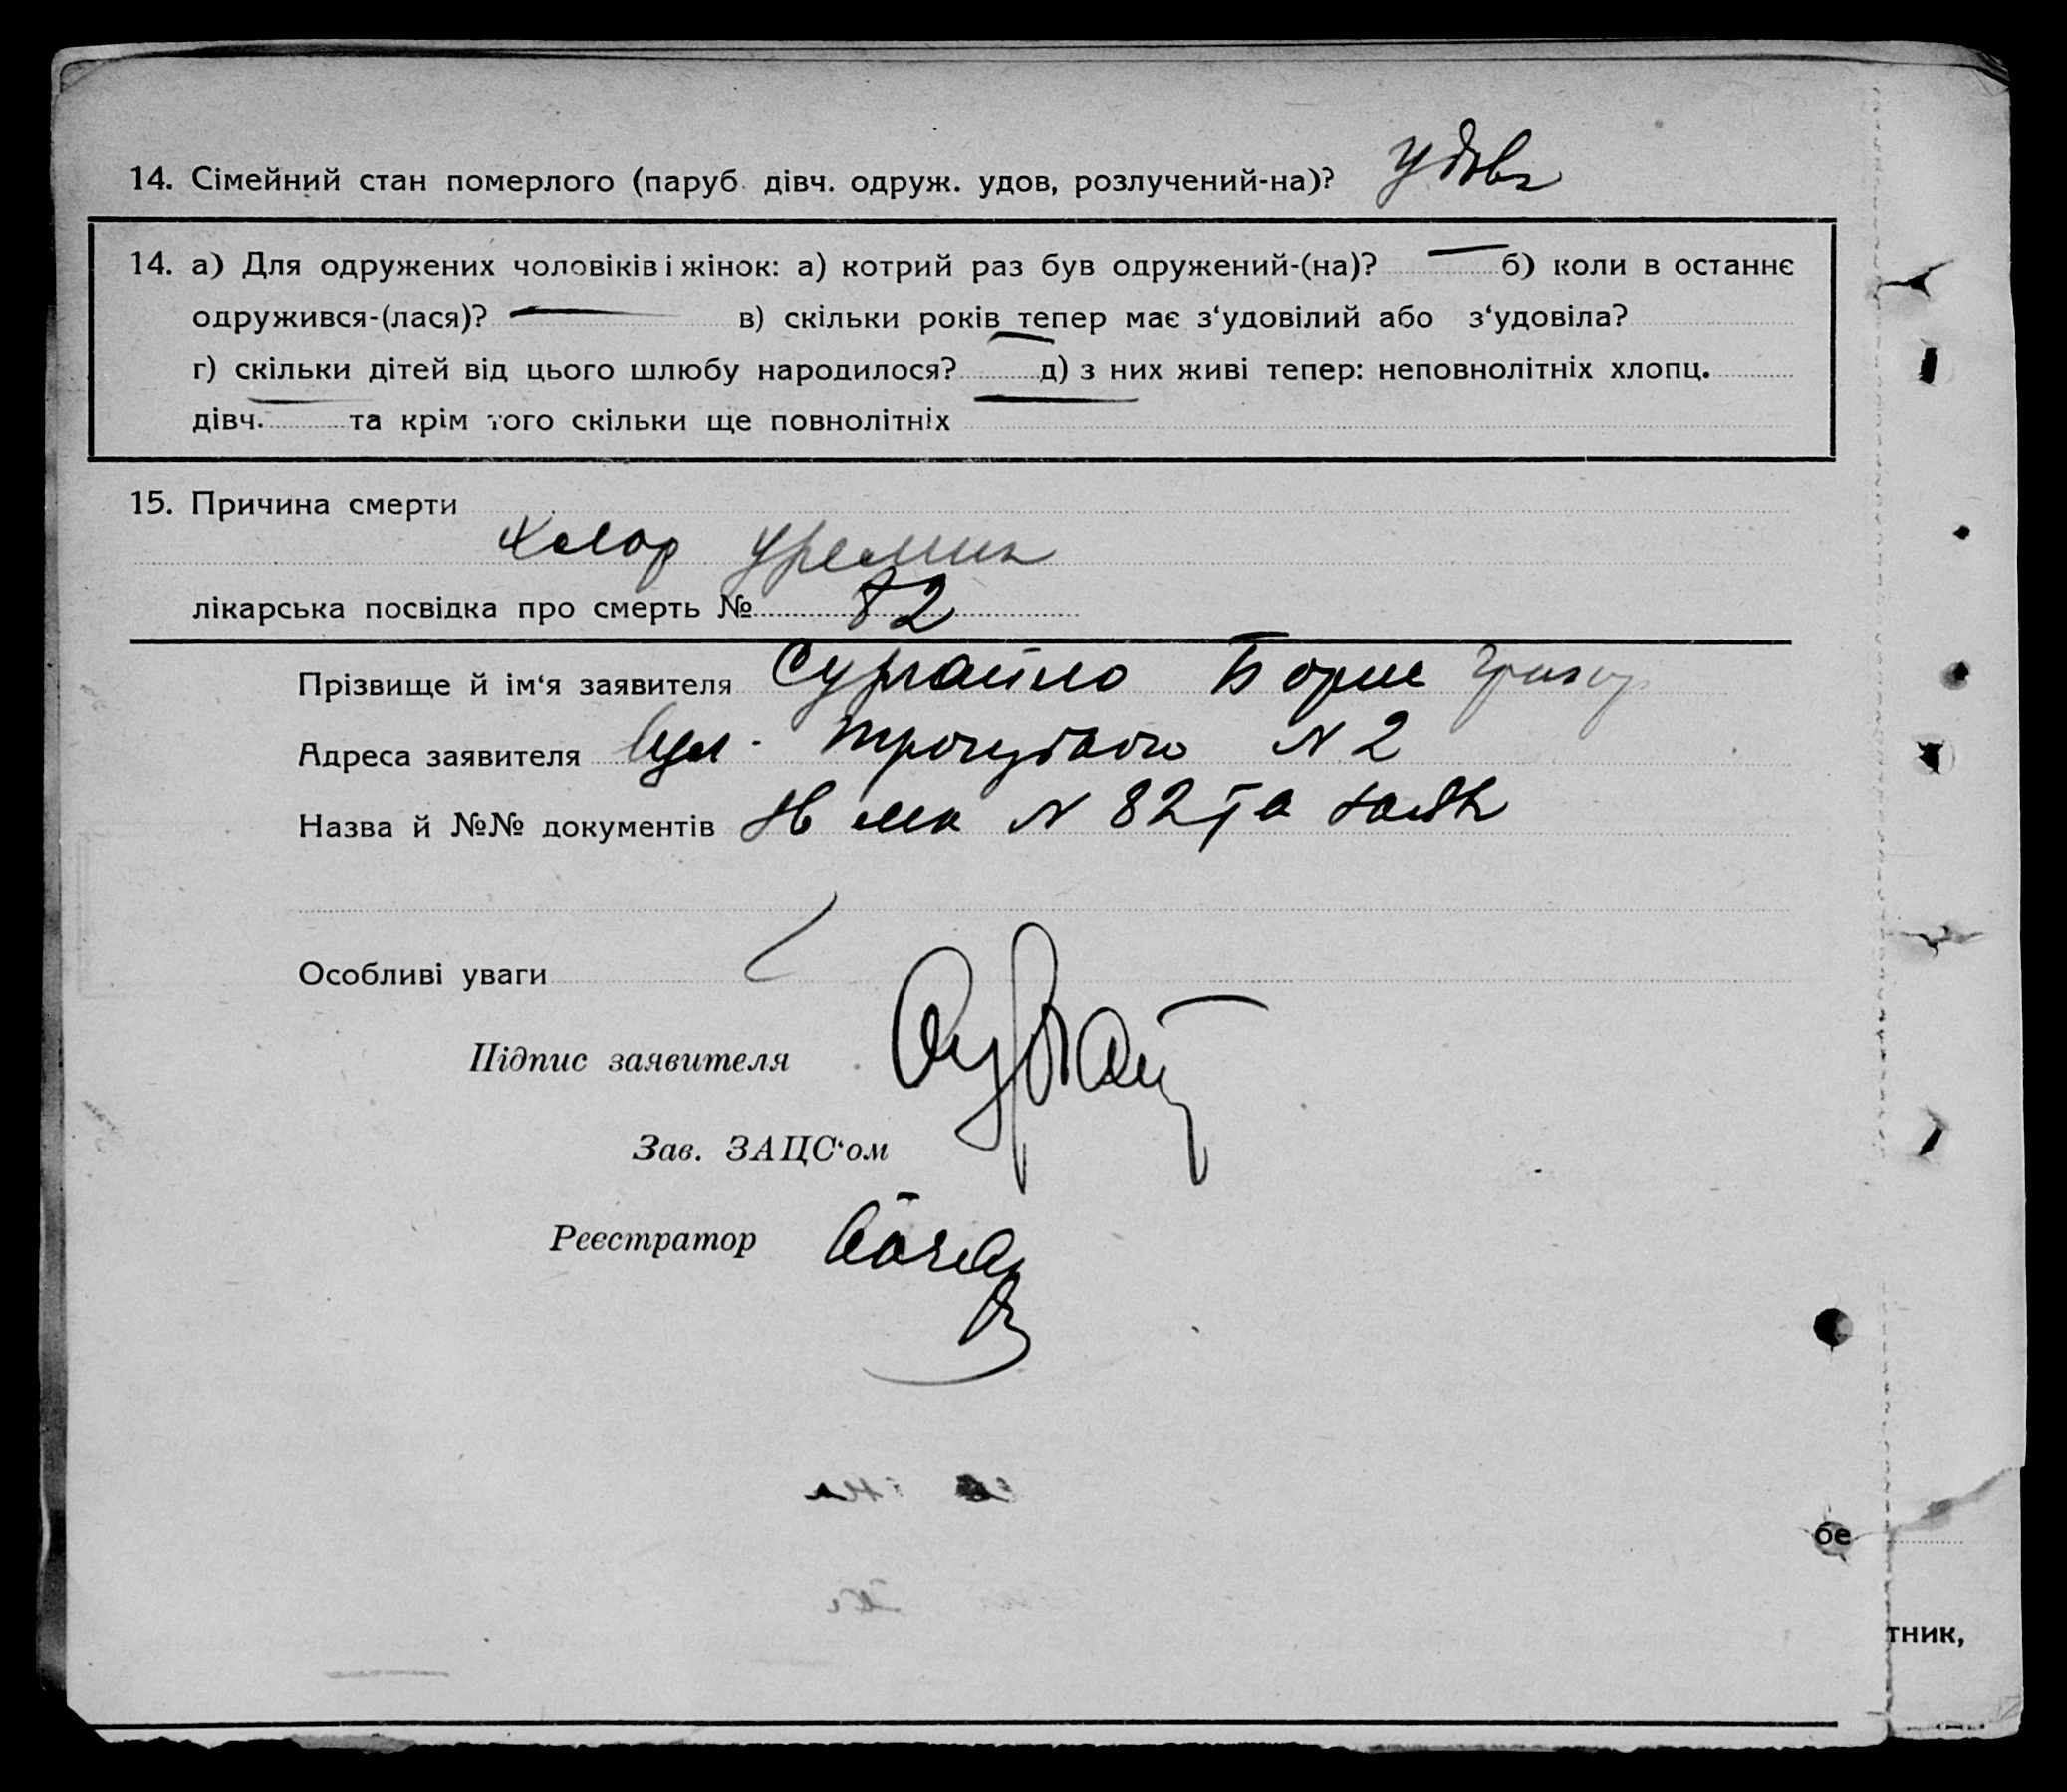 14. Сімейний стан померлого (паруб. дівч. одруж. удов, розлучений-на)? удова
14. а) Для одружених чоловіків і жінок: а) котрий раз був одружений-(на)? — б) коли в останнє
одружився-(лася)? — в) скільки років тепер має з‘удовілий або з‘удовіла?
г) скільки дітей від цього шлюбу народилося? д) з них живі тепер: неповнолітніх хлопц.
дівч. та крім того скільки ще повнолітніх
15. Причина смерти
Хлор уремия
лікарська посвідка про смерть № 82
Прізвище й ім‘я заявителя Сургайло Борис Григор
Адреса заявителя Вул. N 2
Назва й №№ документів N 82 та
Особливі уваги
Підпис заявителя
Зав. ЗАЦС‘ом
Реєстратор
бе
тник,